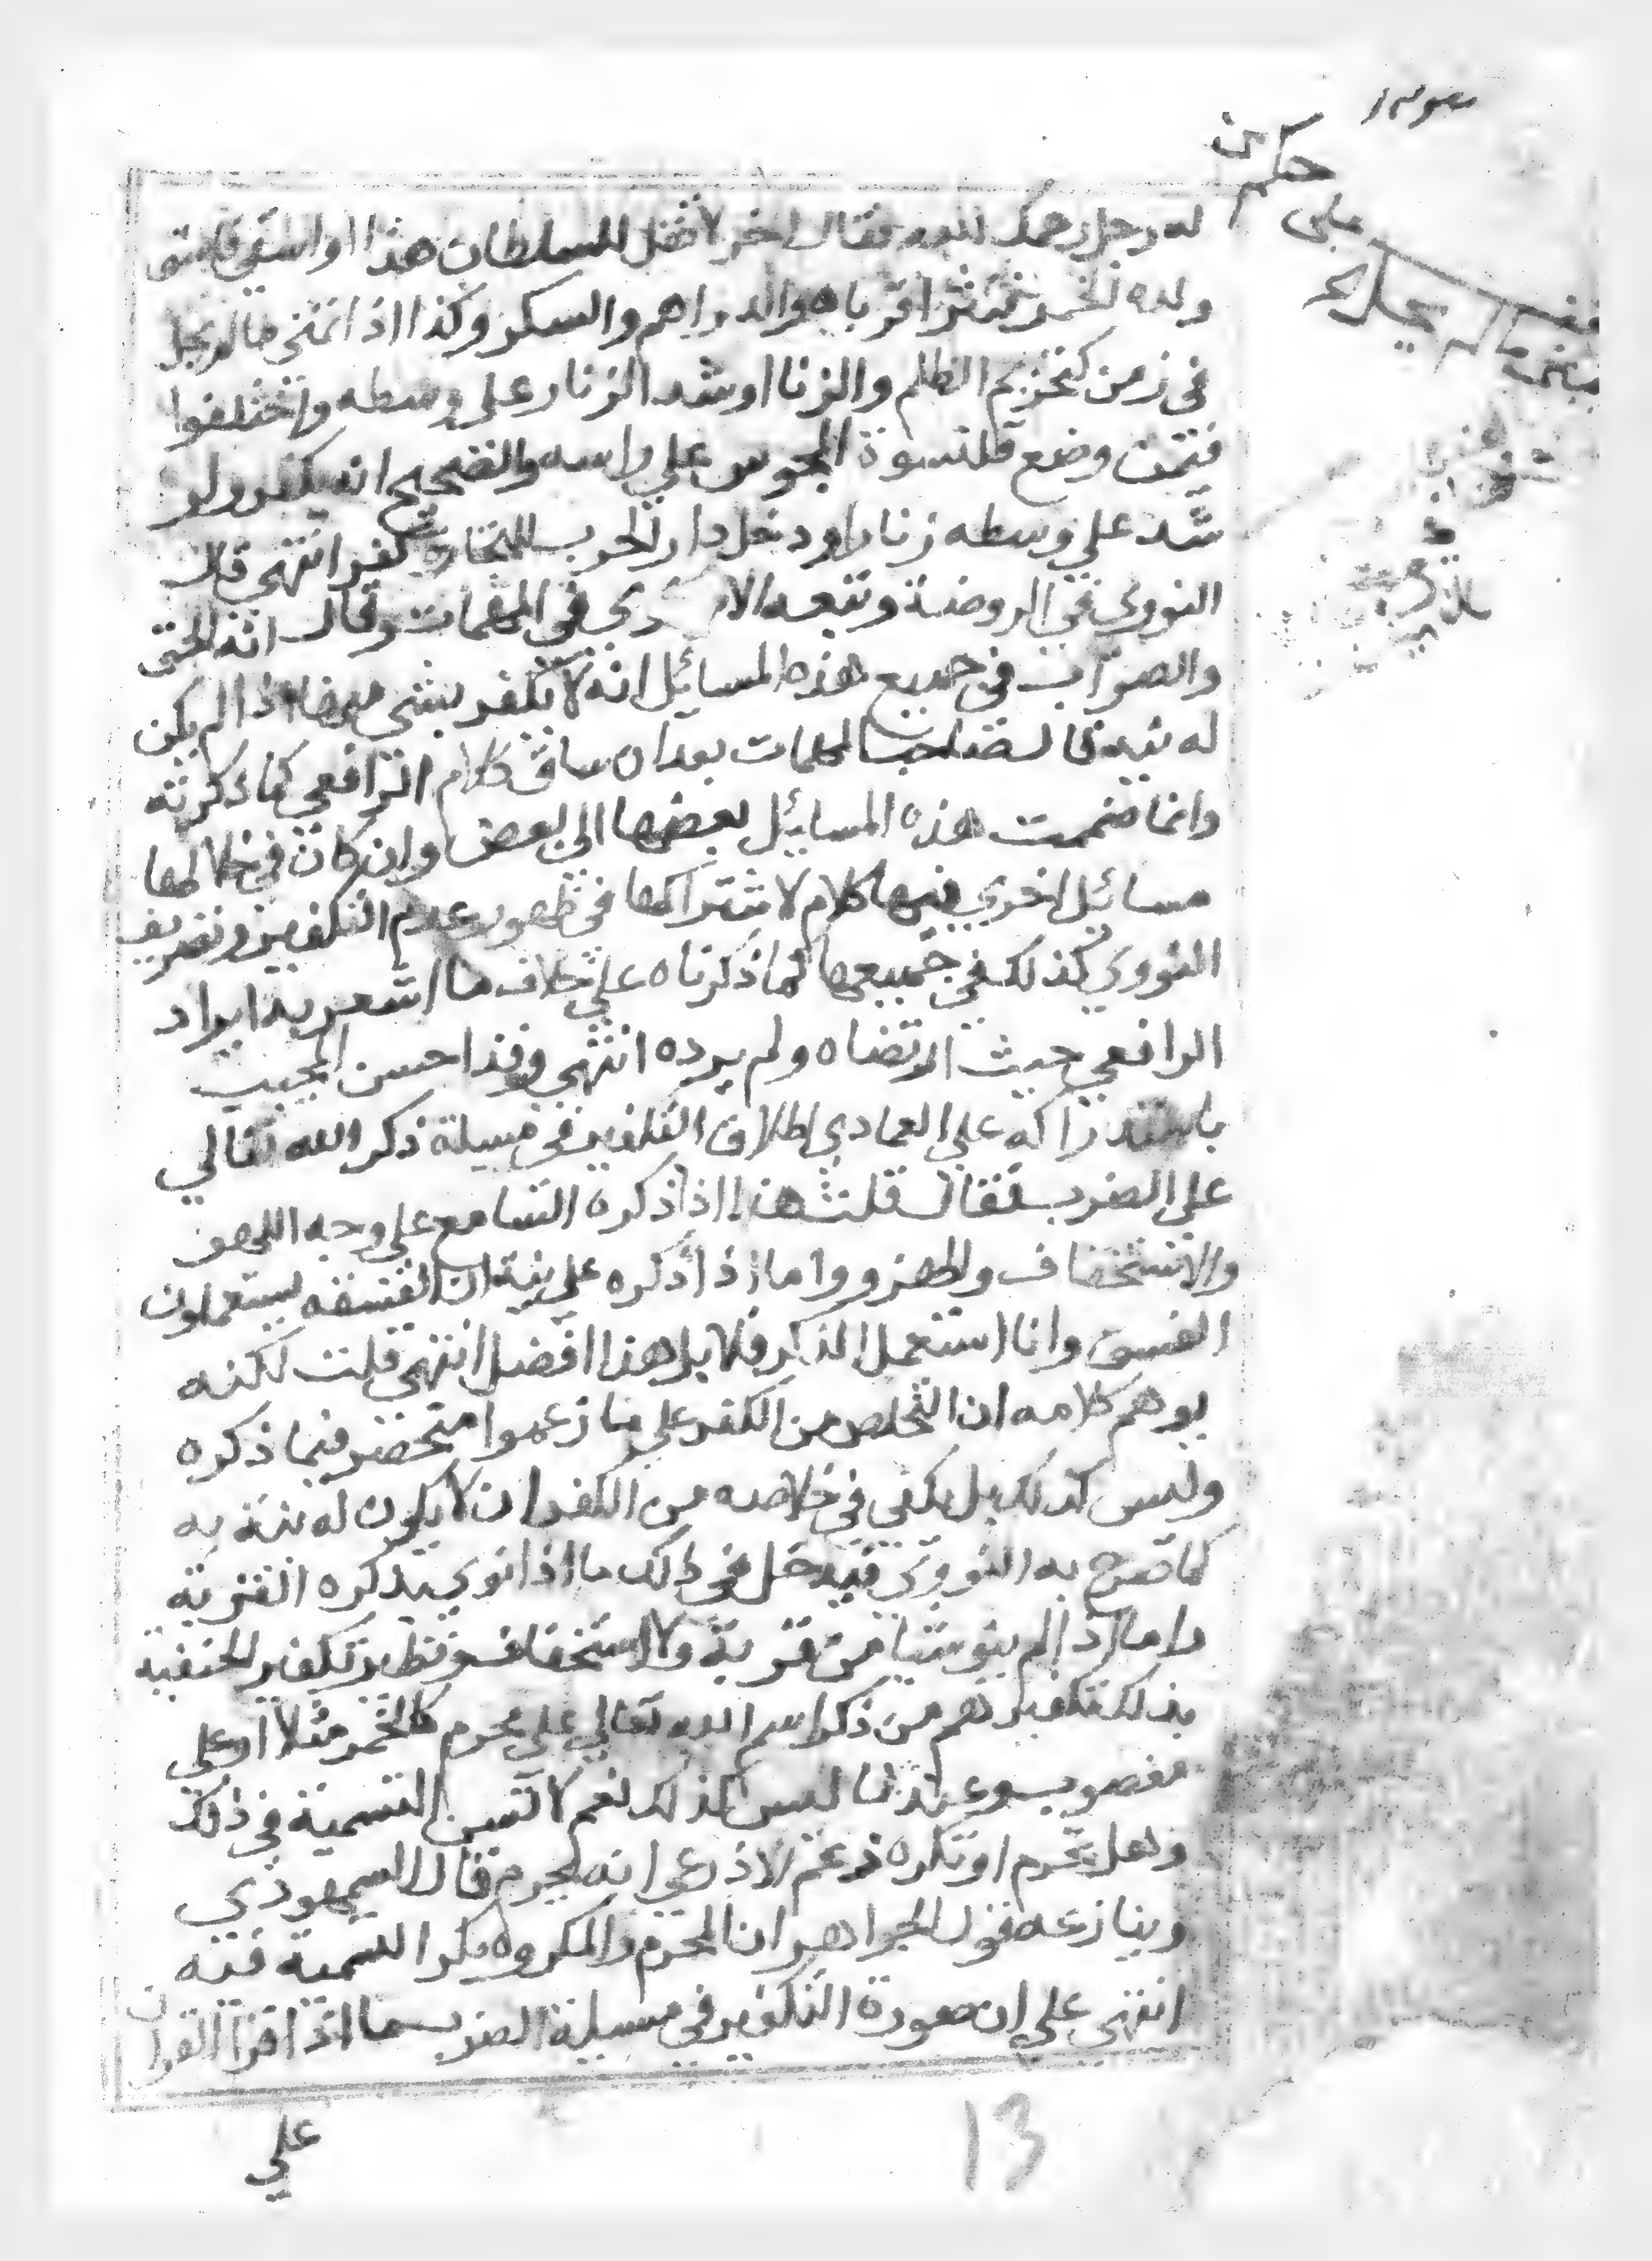 حكم من
له رجل رحمك الله فقال اخر لا تقل للسلطان هذا او اسقي فاسق
ولده الخمر فنثر اقرباه الدراهم والسكر وكذا اذا تمنى حالم يحل
في زمن كتحريم الظلم والزنا او شد الزنار على وسطه واختلفوا
فيمن وضع قلنسوة المجوس علي راسه والصحيح انه يكفر ولو
شد علي وسطه زنارا ودخل دار الحرب للتجارة كفر انتهى قال
النووي في الروضة وتبعه في المهمات وقال انه الحق
والصواب في جميع هذه المسائل انه لا يكفر بشي منها اذا لم يكن
له نية قال صاحب المهمات بعد ان ساق كلام الرافعي كما ذكرته
وانما ضممت هذه المسائل بعضها الي بعض وان كان في خلالها
مسائل اخري فيها كلام لاشتراكها في ظهور عدم التكفير وتصريف
النووي كذلك في جميعها كما ذكرناه علي خلاف ما اشعر به ايراد
الرافعي حيث ارتضاه ولم يرده انتهي وقد احسن المجيب
باستدراكه علي العمادي اطلاق التكفير في مسيلة ذكر الله تعالي
علي الضرب فقال قلت هذا اذا ذكره السامع علي وجه اللهو
والاستخفاف والهزو واما اذا ذكره علي نية ان الفسقه يستعملون
الفسق وانا استعمل الذكر فلا بل هذا افضل انتهي قلت لكنه
يوهم كلامه ان التخلص من الكفر علي ما زعموا منحصر فيما ذكره
وليس كذلك بل يكفي في خلاصه من الكفر ان لا يكون له نية به
كما صرح به النووي فيدخل في ذلك ما اذا نوي بذكره القربة
واما اذا لم ينو شيا من قربة ولا استخفاف ونظير تكفير الحنفية
بذلك تكفيرهم من ذكر اسم الله تعالي علي محرم كالخمر مثلا او علي
مغصوب وعندنا ليس كذلك نعم لا تسن التسمية في ذلك
وهل يحرم او يكره زعم الاذرعي انه يحرم قال السمهودي
وينازعه قول الجواهر ان المحرم والمكروه يكره التسمية فيه
انتهي علي ان صورة التكفير في مسيلة الضرب ما اذا قرا القران
علي
13